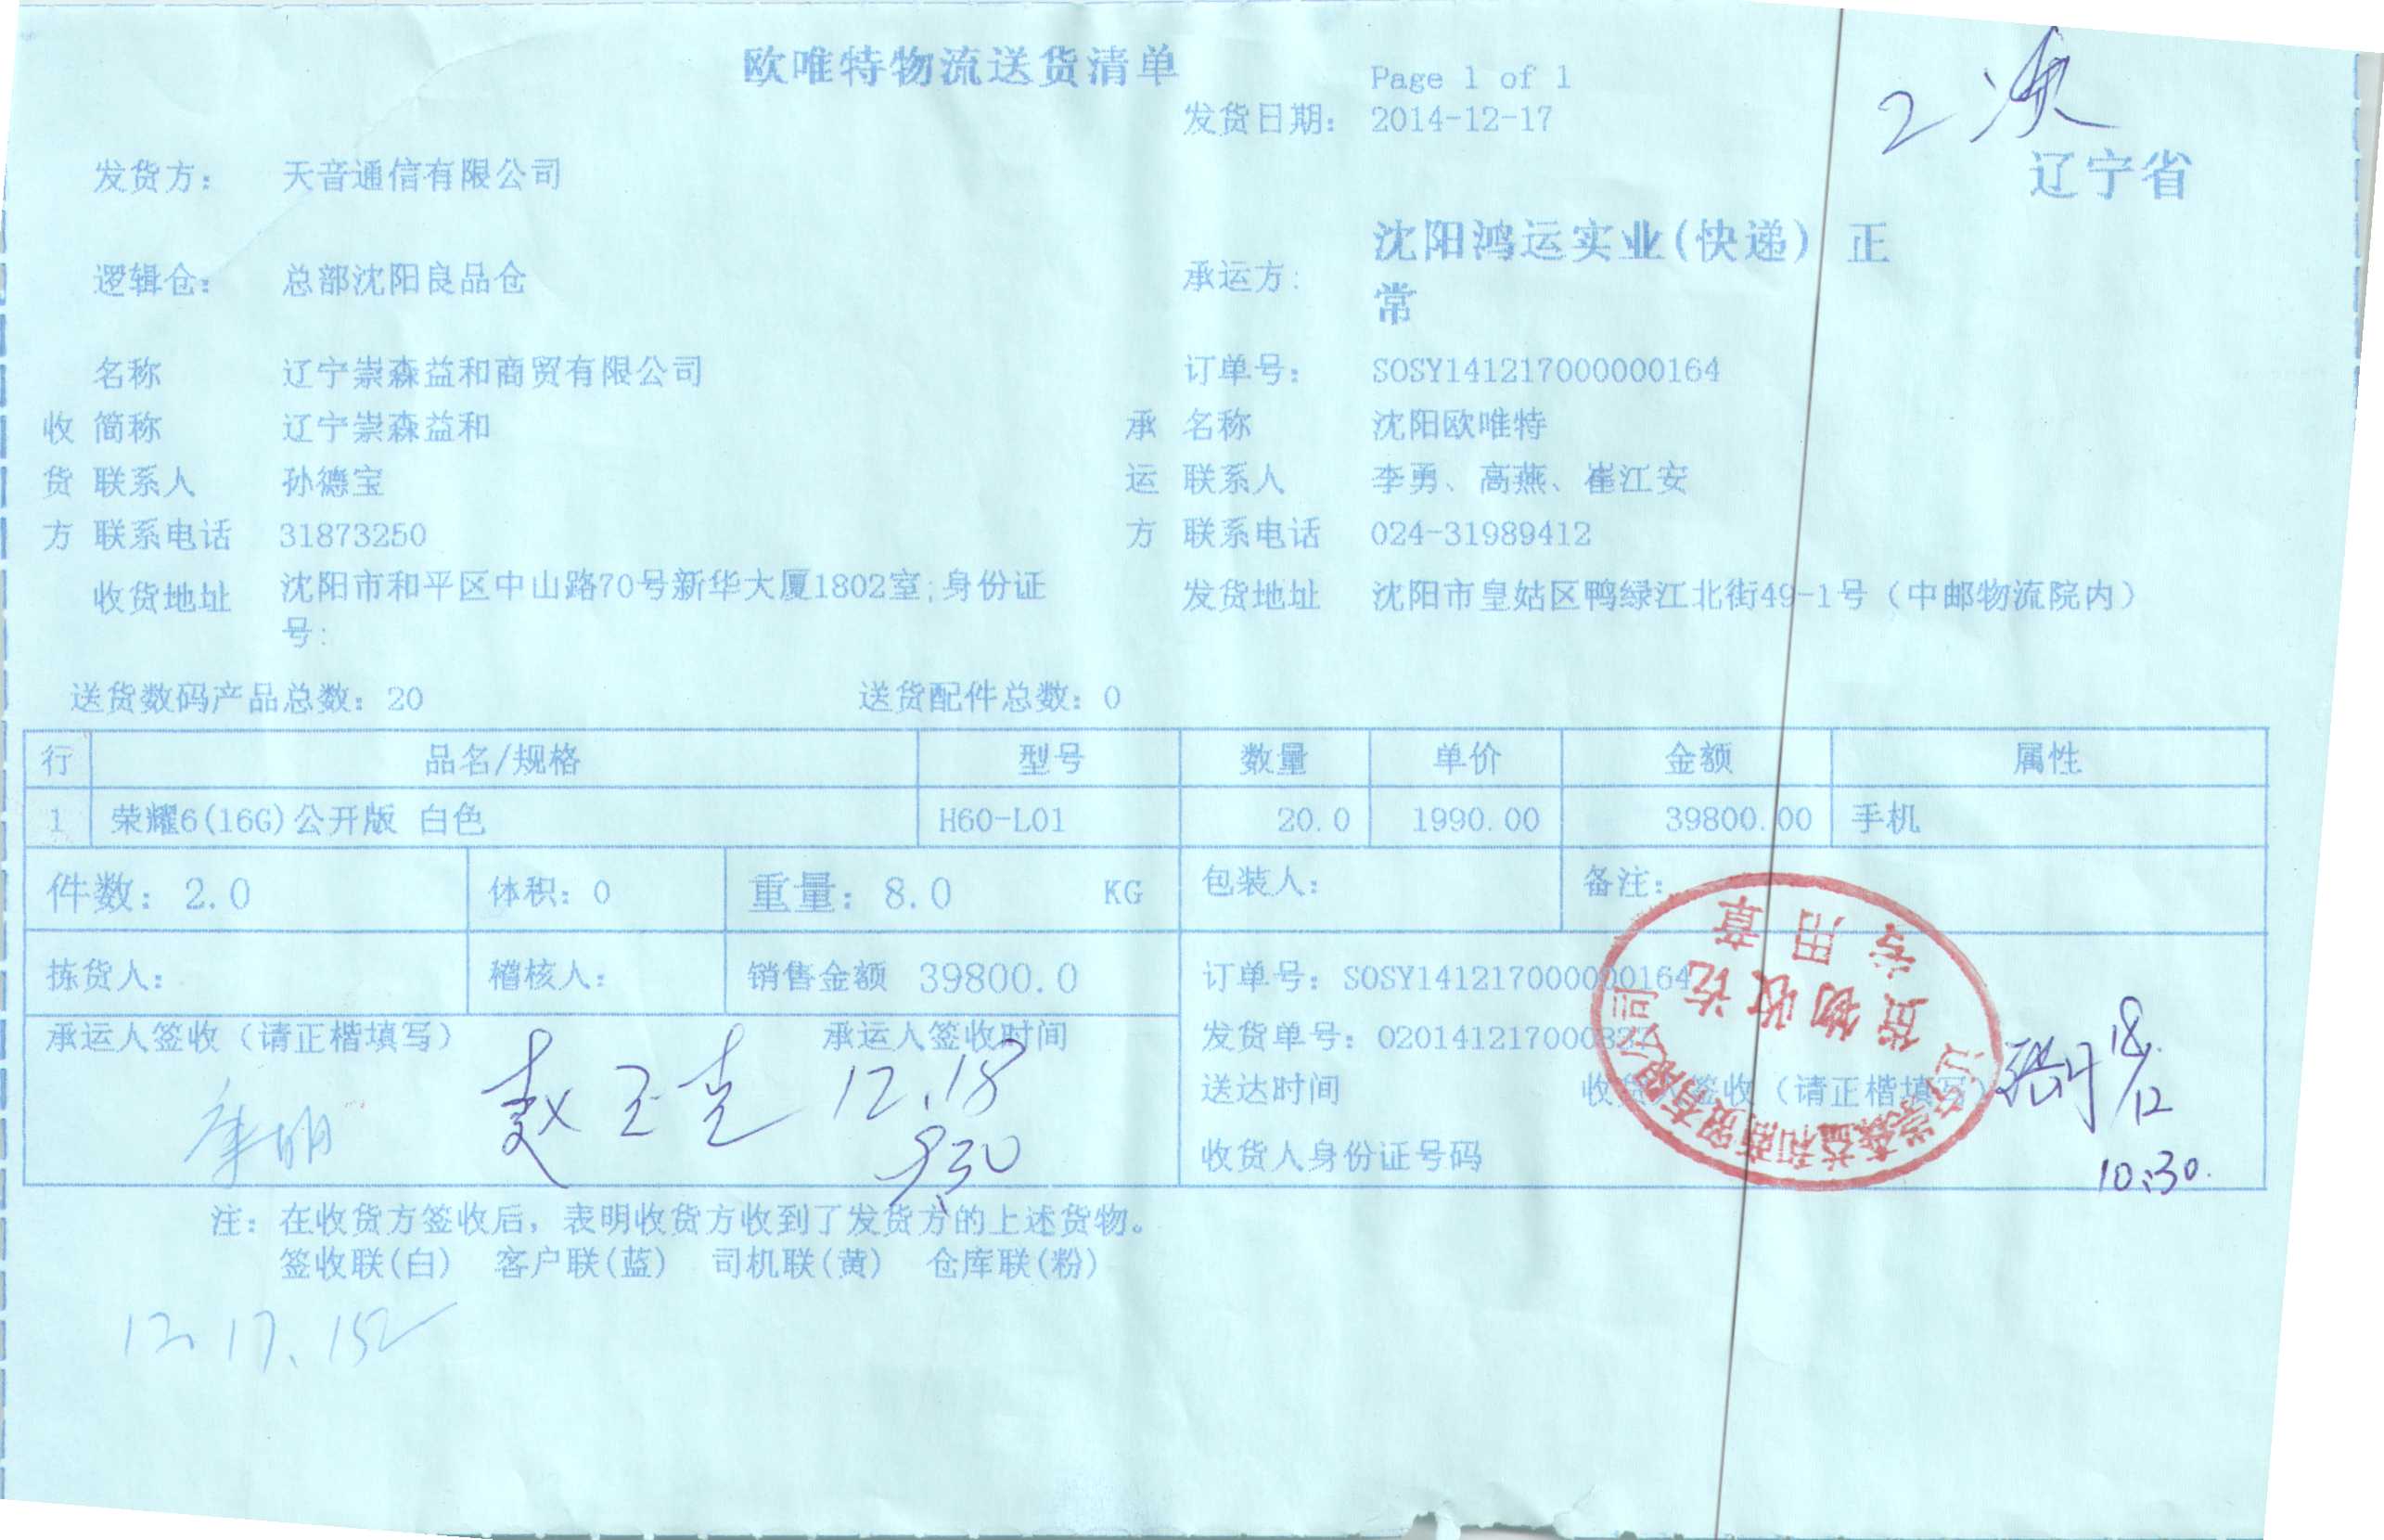 欧唯特物流送货清单
Page 1 of 1
发货日期: 2014-12-17
2 次
辽宁省
发货方: 天音通信有限公司
逻辑仓: 总部沈阳良品仓
承运方: 沈阳鸿运实业(快递) 正
常
名称 辽宁崇森益和商贸有限公司 订单号: SOSY141217000000164
收 简称 辽宁崇森益和 承 名称 沈阳欧唯特
货 联系人 孙德宝 运 联系人 李勇、高燕、崔江安
方 联系电话 31873250 方 联系电话 024-31989412
收货地址 沈阳市和平区中山路70号新华大厦1802室;身份证
号:
发货地址 沈阳市皇姑区鸭绿江北街49-1号（中邮物流院内）
送货数码产品总数: 20 送货配件总数: 0
行 品名/规格 型号 数量 单价 金额 属性
1 荣耀6(16G)公开版 白色 H60-L01 20.0 1990.00 39800.00 手机
件数: 2.0 体积: 0 重量: 8.0 KG 包装人: 备注:
拣货人: 稽核人: 销售金额 39800.0 订单号: SOSY141217000000164
承运人签收（请正楷填写） 承运人签收时间 发货单号: 020141217000337
12.18
9:30
送达时间 收货人签收（请正楷填写）
18/12
10:30.
收货人身份证号码
辽宁崇森益和商贸有限公司
货物收讫
专用章
注: 在收货方签收后，表明收货方收到了发货方的上述货物。
签收联(白) 客户联(蓝) 司机联(黄) 仓库联(粉)
12.17.152